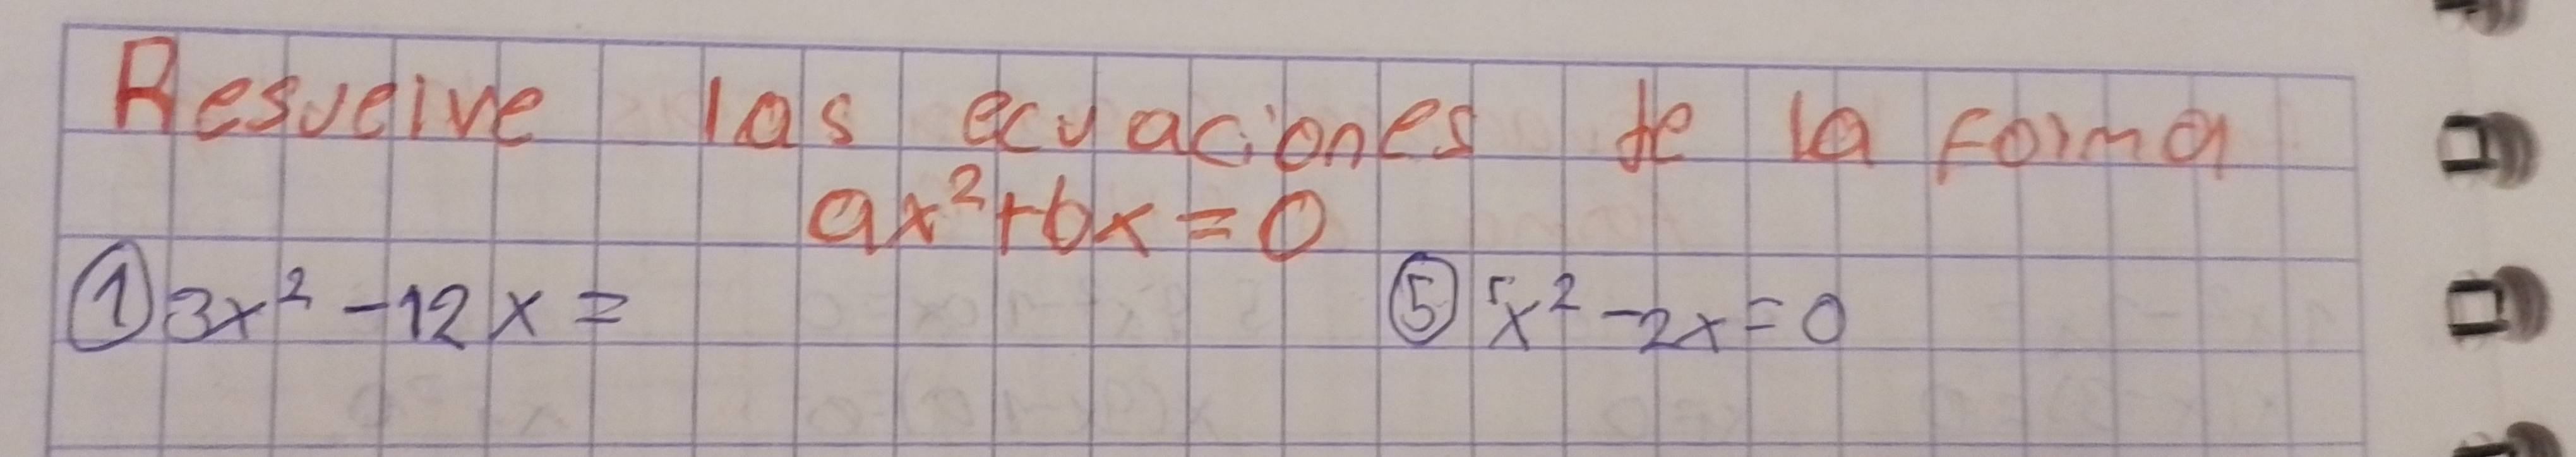 Resuelve las ecuaciones de la forma
ax²+bx=0
① 3x² -12x =
⑤ x² -2x=0